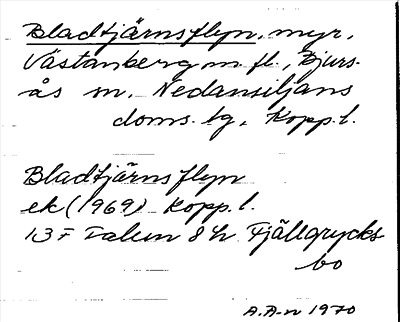 Bladtjärnsflyn, myr,
Västanberg m. fl., Bjurs-
ås sn. Nedansiljans
doms. tg, Kopp. l.
Bladtjärnsflyn
ek (1969) Kopp. l.
13 F Falun 8 h Fjällgrycks
bo
A.A-n 1970